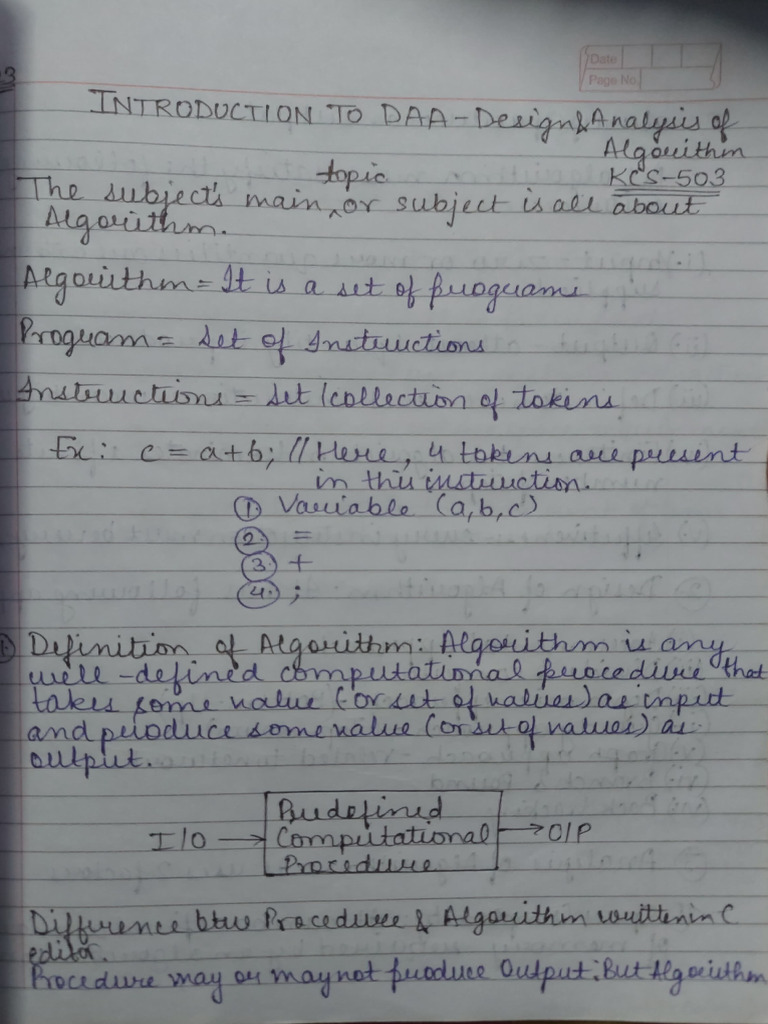 Date
Page No.
3
INTRODUCTION TO DAA - Design & Analysis of
Algorithm
KCS-503
The subject's main ^ topic or subject is all about
Algorithm.
Algorithm = It is a set of programs
Program = Set of Instructions
Instructions = Set / collection of tokens
Ex: c = a+b; // Here, 4 tokens are present
in this instruction.
① Variable (a,b,c)
② =
③ +
④ ;
1. Definition of Algorithm: Algorithm is any
well-defined computational procedure that
takes some value (or set of values) as input
and produce some value (or set of values) as
output.
Predefined
I/O → Computational → O/P
Procedure
Difference btw Procedure & Algorithm written in C
editor.
Procedure may or may not produce Output: But Algorithm